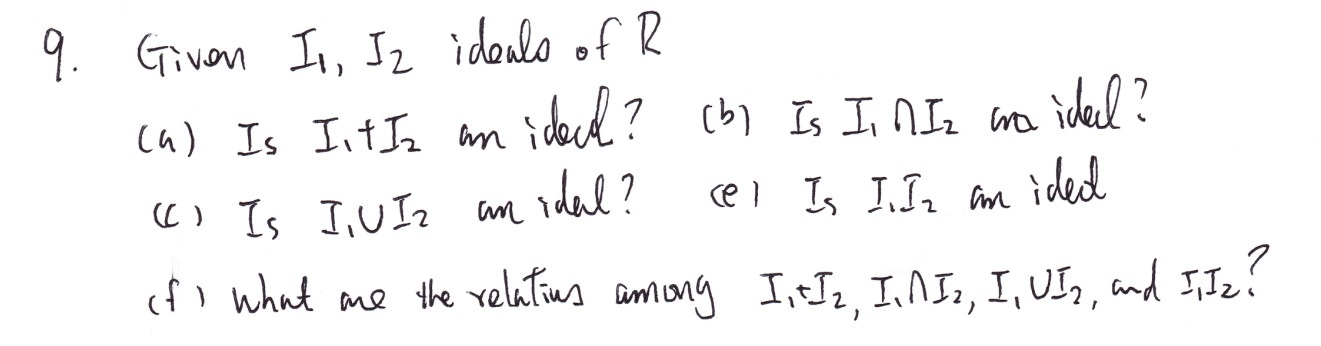 9. Given I₁, I₂ ideals of R
(a) Is I₁+I₂ an ideal? (b) Is I₁∩I₂ an ideal?
(c) Is I₁∪I₂ an ideal? (e) Is I₁I₂ an ideal
(f) What are the relations among I₁+I₂, I₁∩I₂, I₁∪I₂, and I₁I₂?